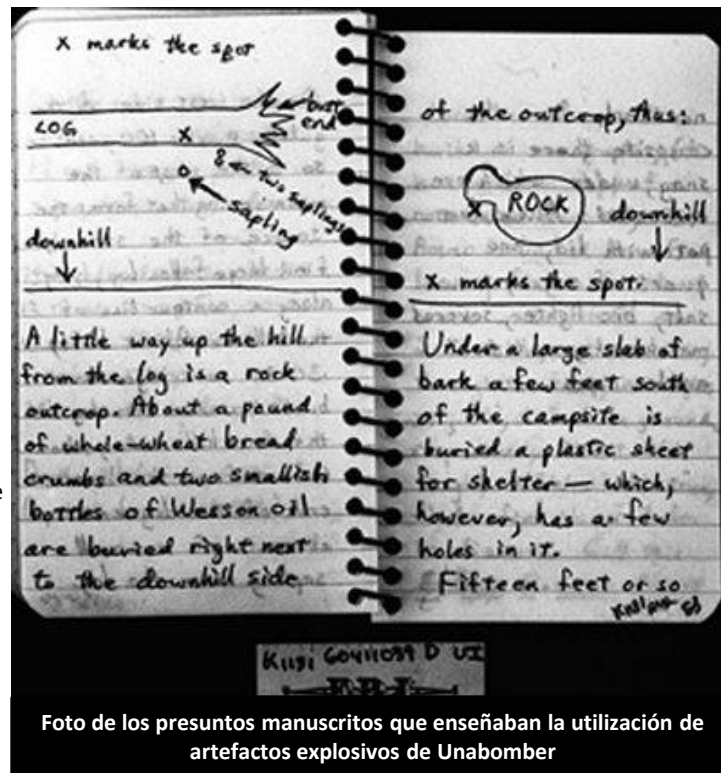 x marks the spot
butt
end
LOG
x
8 ← two saplings
o
sapling
downhill
A little way up the hill
from the log is a rock
outcrop. About a pound
of whole-wheat bread
crumbs and two smallish
bottles of Wesson oil
are buried right next
to the downhill side
of the outcrop, thus:
ROCK
x
downhill
x marks the spot.
Under a large slab of
bark a few feet south
of the campsite is
buried a plastic sheet
for shelter — which,
however, has a few
holes in it.
Fifteen feet or so
FBI
Foto de los presuntos manuscritos que enseñaban la utilización de
artefactos explosivos de Unabomber